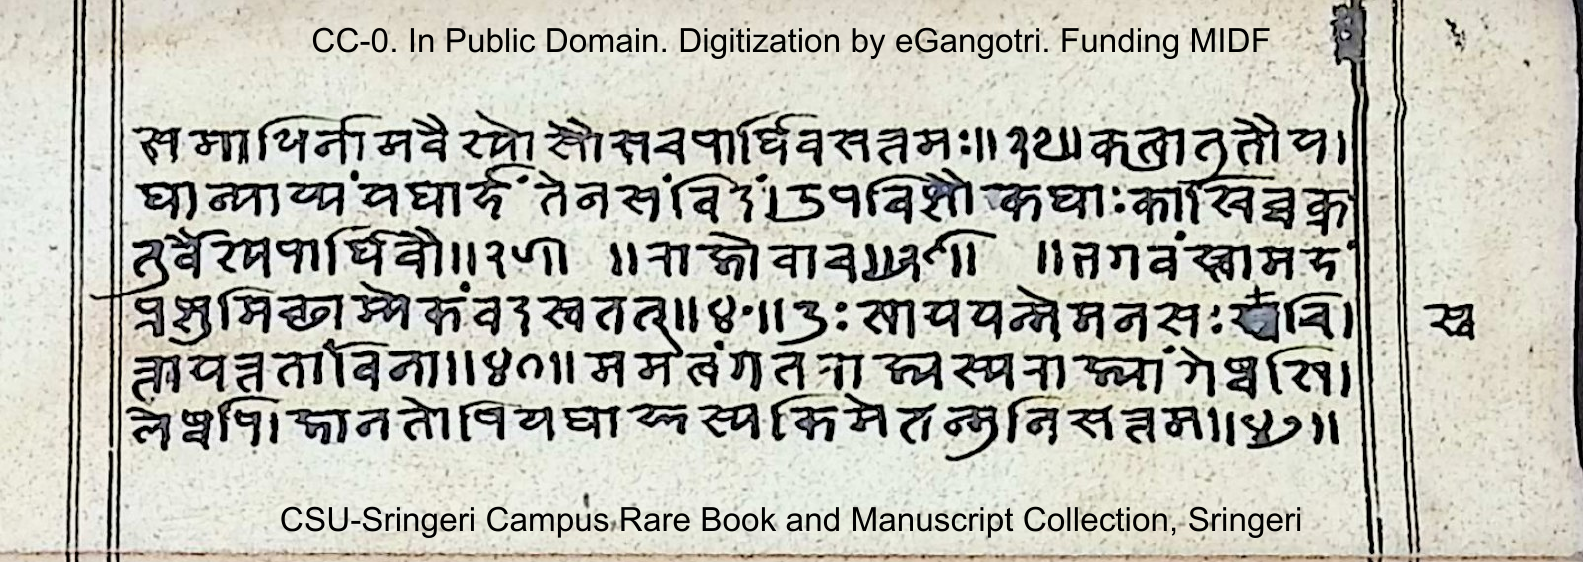 CC-0. In Public Domain. Digitization by eGangotri. Funding MIDF
समाधिर्नाम वैश्यो सौ स च पार्थिवसत्तमः॥३८॥ कृत्वा तु तौ य।
था न्याय्यं यथार्हं तेन संविदं। उपविष्टौ कथाः काश्चिच्चक्र
तुर्वैश्यपार्थिवौ॥३९॥ ॥राजोवाच॥ ॥भगवंस्त्वामहं
प्रष्टुमिच्छाम्येकं वदस्व तत्॥४०॥ दुःखाय यन्मे मनसः स्वचि।
स्व
त्तायत्ततां विना॥४१॥ ममत्वं गतराज्यस्य राज्यांगेष्वखि।
लेष्वपि। जानतोपि यथाज्ञस्य किमेतन्मुनिसत्तम॥४२॥
CSU-Sringeri Campus Rare Book and Manuscript Collection, Sringeri